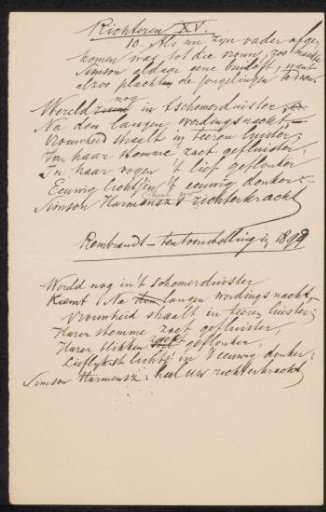 Richteren XV.
10. Als nu zijn vader afge-
komen was tot die vrouw, zoo maakte
Simson aldaar eene bruiloft, want
alzoo plachten de jongelingen te doen.
Wereld nog in 't schemerduister
Na den langen wordingsnacht —
Vroomheid straalt in teeren luister,
Van haar stemme zacht gefluister,
In haar oogen 't lief geflonker
Eeuwig lichtj' in 't eeuwig donker: —
Simson Harmensz' zichterkracht
Rembrandt-tentoonstelling 1898
Wereld nog in 't schemerduister
Komt Na den langen wordingsnacht,
Vroomheid straalt in teeren luister;
Harer stemme zacht gefluister,
Harer blikken zacht geflonker,
Lieflijkst lichtj' in 't eeuwig donker:
Simson Harmensz: heel uw zichterkracht